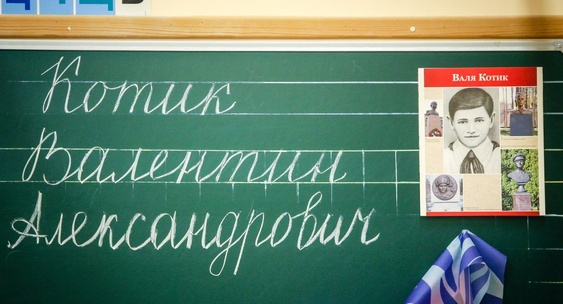 Котик
Валентин
Александрович
ВАЛЯ КОТИК